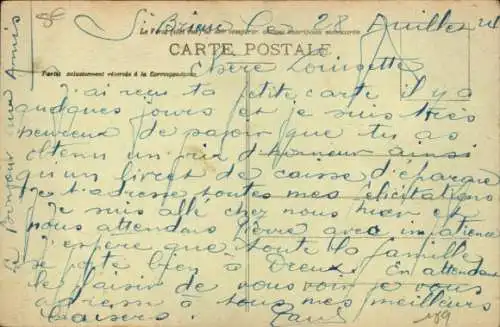 St Brieuc le 28 Juillet
CARTE POSTALE
Partie exclusivement réservée à la Correspondance
Chère Louisette
J'ai reçu ta petite carte il y a
quelques jours et je suis très
heureux de savoir que tu as
obtenu un prix d'honneur ainsi
qu'un livret de caisse d'épargne
Je t'adresse toutes mes félicitations
Je suis allé chez nous hier et
nous attendons Pierre avec impatience
J'espère que toute la famille
se porte bien à Dreux. En attendant
le plaisir de vous voir je vous
adresse à tous mes meilleurs
baisers.
Le bonjour aux Amis